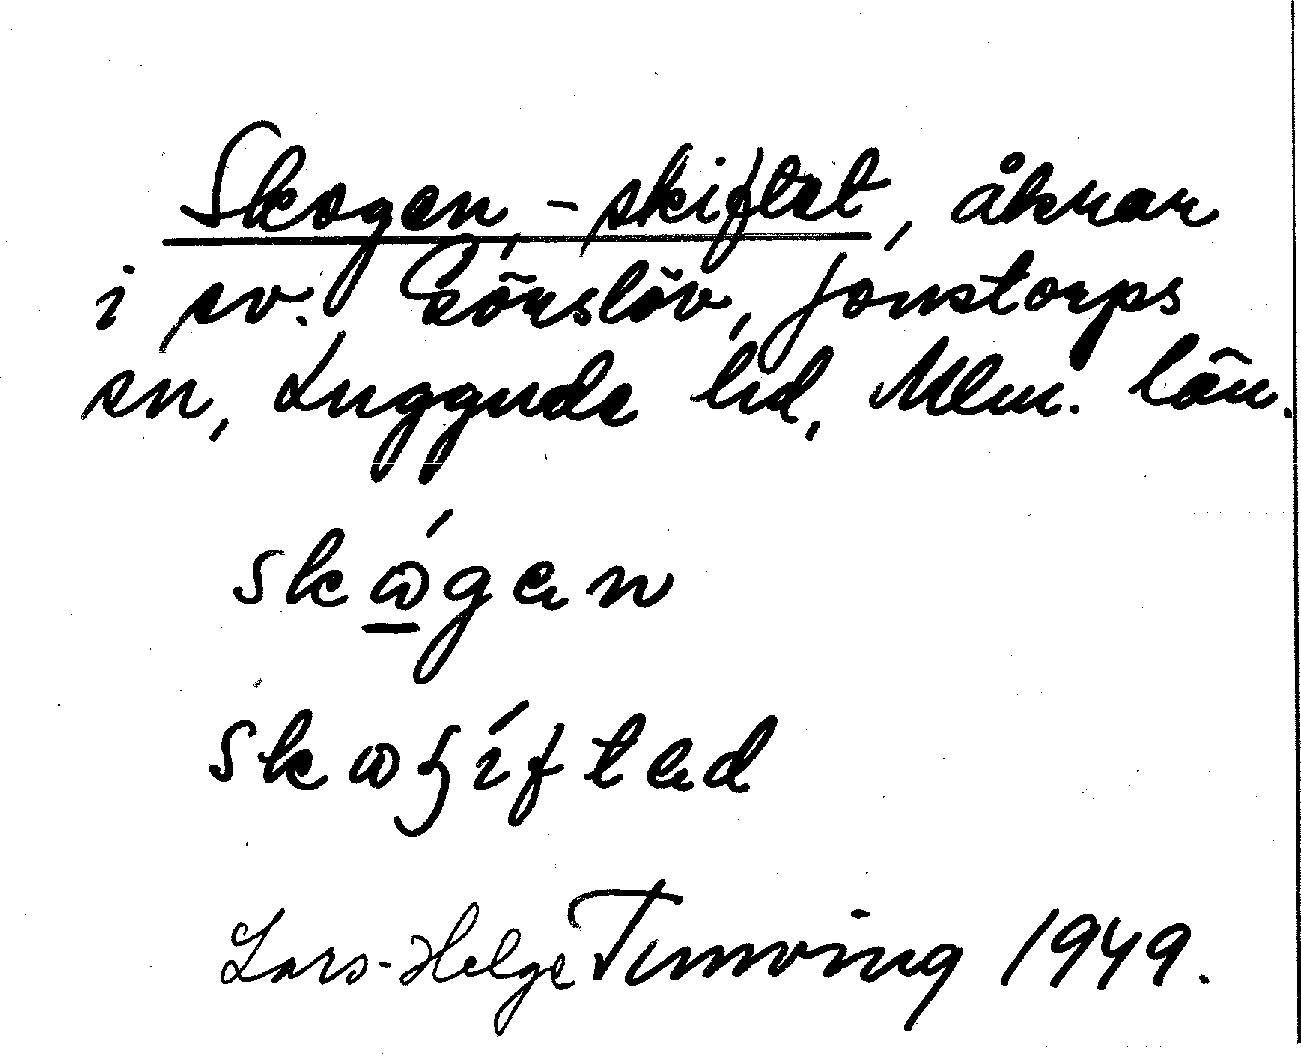 Skogen, -skiftet, åkrar
i sv. Görslöv, Jonstorps
sn, Luggude hd, Mlm. län.
skώgen
skωʒíftəd
Lars-Helge Tunving 1949.